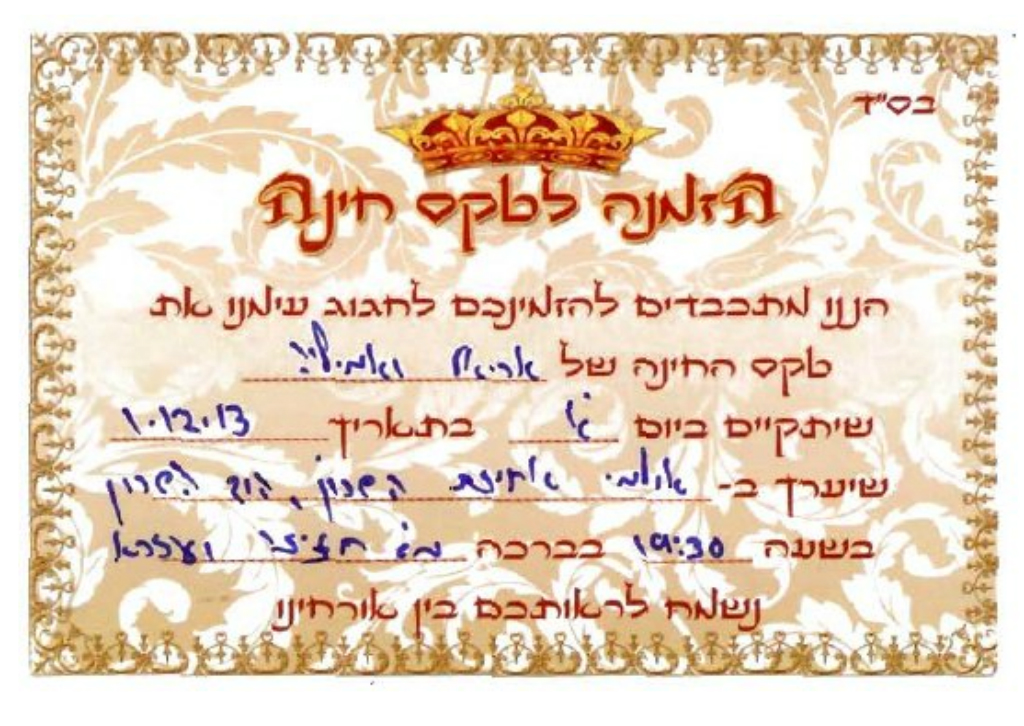 בס"ד
הזמנה לטקס חינה
הננו מתכבדים להזמינכם לחגוג עימנו את
טקס החינה של אריאל ואמיליה
שיתקיים ביום א' בתאריך 1.12.13
שיערך ב- אולמי אחוזת השרון, הוד השרון
בשעה 19:30 בברכה ועזרא
נשמח לראותכם בין אורחינו